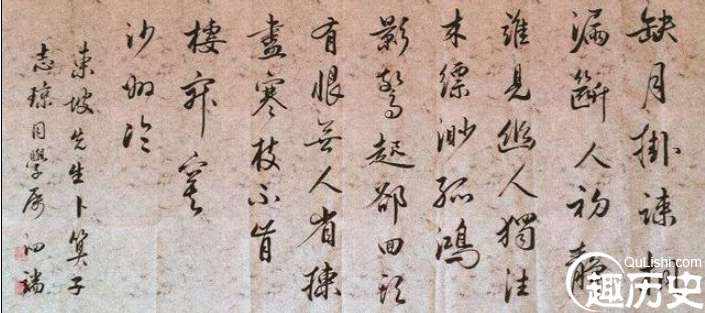 缺月掛疎桐
漏斷人初靜
誰見幽人獨往
来縹渺孤鴻
影驚起卻回頭
有恨無人省揀
盡寒枝不肯
棲寂寞
沙洲冷
東坡先生卜算子
志琼同學屬
QuLishi.com
趣历史